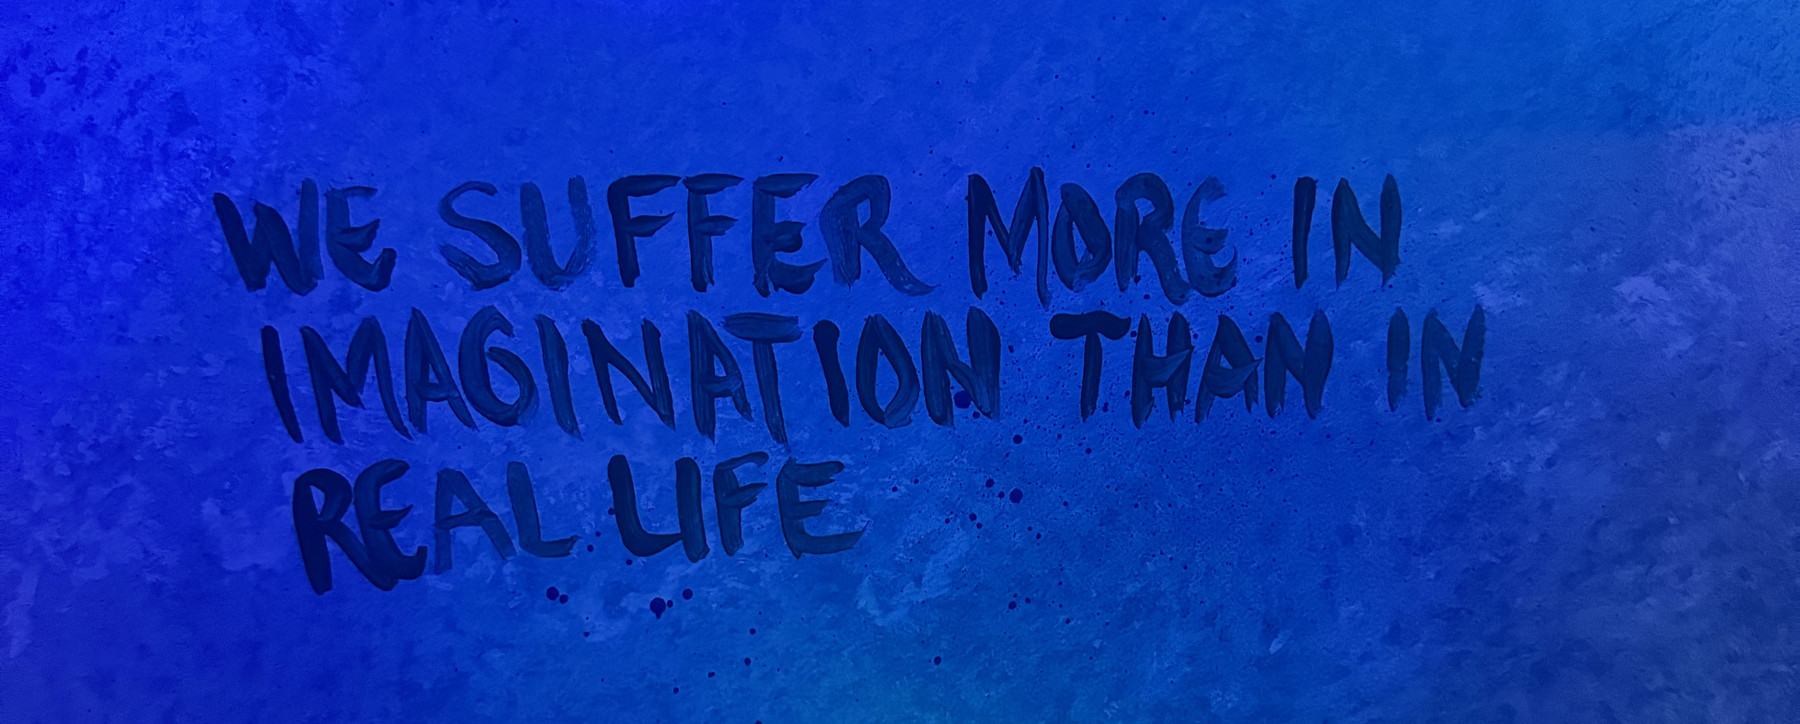 WE SUFFER MORE IN
IMAGINATION THAN IN
REAL LIFE